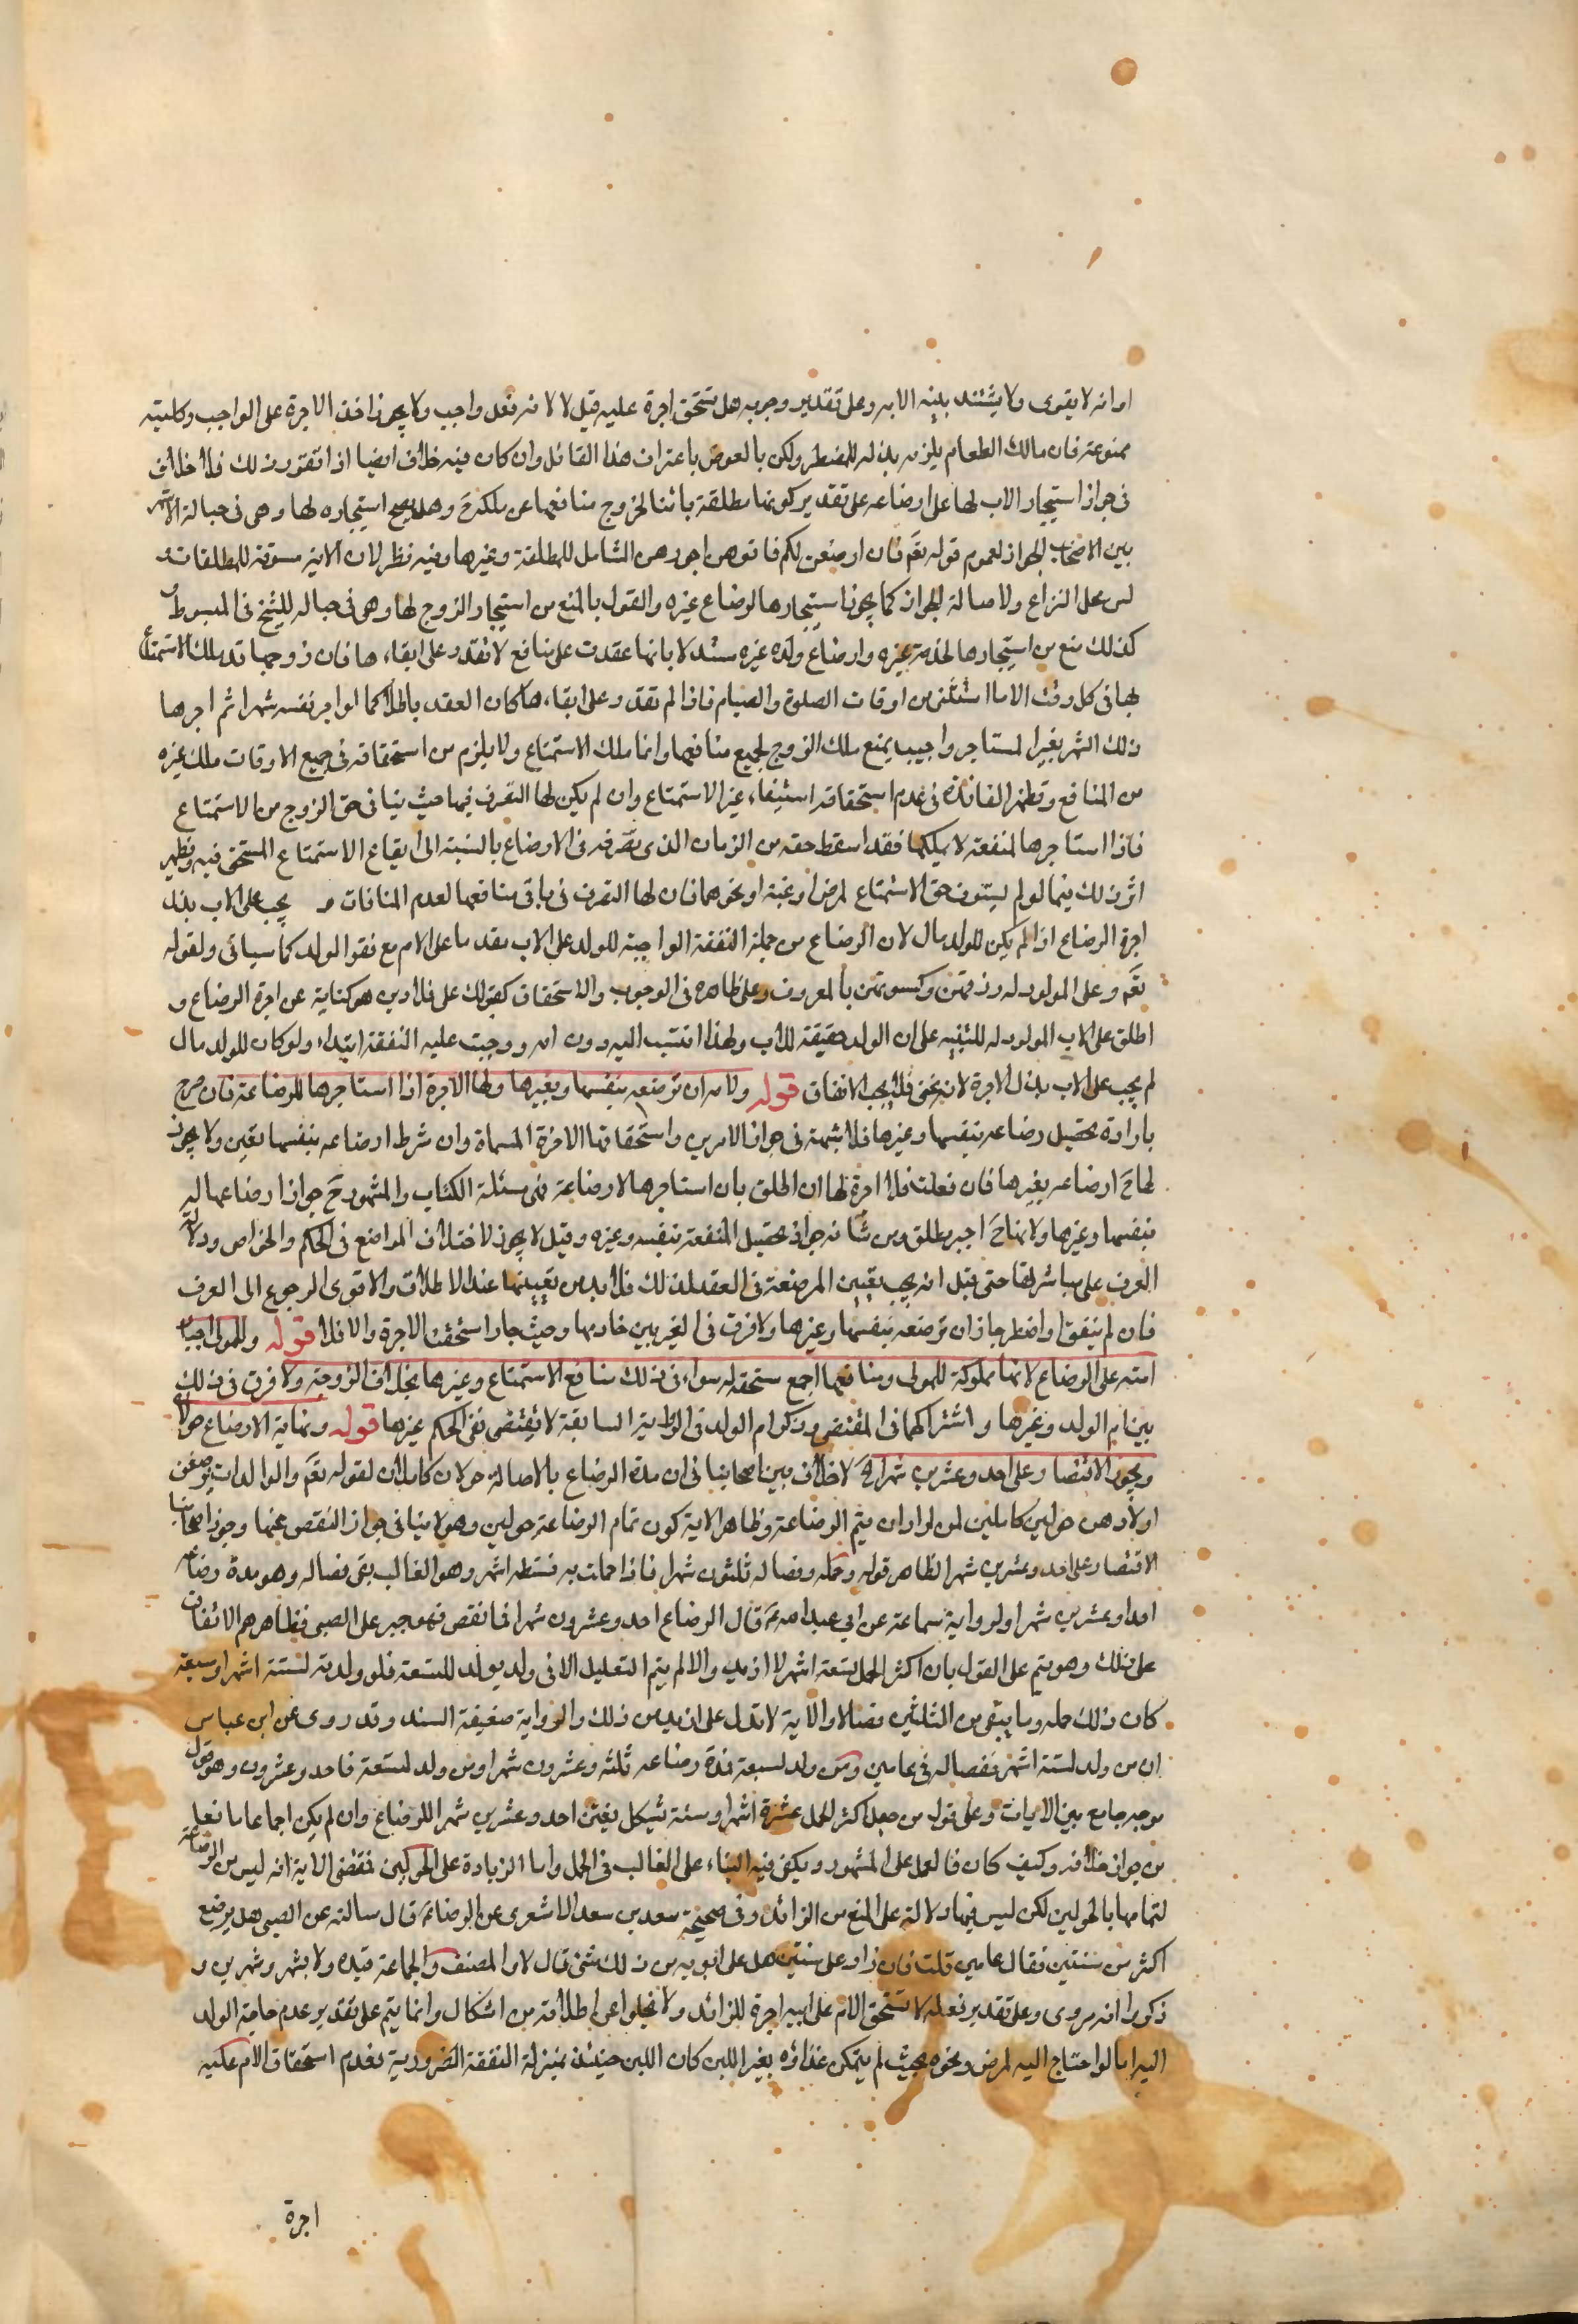 او انه لا يقوى ولا يشتد بنيته الا به وعلى تقدير وجوبه هل تستحق اجرة عليه قيل لا لانه فعل واجب ولا يجوز اخذ الاجرة على الواجب وكليته
ممنوعة فان مالك الطعام يلزمه بذله للمضطر ولكن بالعوض باعتراف هذا القائل وان كان فيه خلاف ايضا اذا تقرر ذلك فلا خلاف
فى جواز استيجار الاب لها على ارضاعه على تقدير كونها مطلقة بائنا لخروج منافعها عن ملكه ح وهل يصح استيجاره لها وهى فى حباله الاشهر
بين الاصحاب الجواز لعموم قوله تعم فان ارضعن لكم فاتوهن اجورهن الشامل للمطلقة وغيرها وفيه نظر لان الاية مسوقة للمطلقات و
ليس محل النزاع ولاصالة الجواز كما يجوز استيجارها لرضاع غيره والقول بالمنع من استيجار الزوج لها وهى فى حباله للشيخ فى المبسوط و
كذلك منع من استيجارها لخدمة غيره وارضاع ولده غيره مستدلا بانها عقدت على منافع لا تقدر على ايفاءها فان زوجها قد ملك الاستمتاع
بها فى كل وقت الا ما استثنى من اوقات الصلوة والصيام فاذا لم تقدر على ايفاءها كان العقد باطلا كما لو اجر نفسه شهرا ثم اجرها
ذلك الشهر بغير المستاجر واجيب بمنع ملك الزوج لجميع منافعها وانما ملك الاستمتاع ولا يلزم من استحقاقه فى جميع الاوقات ملك غيره
من المنافع وتظهر الفائدة فى عدم استحقاقه استيفاء غير الاستمتاع وان لم يكن لها التصرف فيها حيث ينافى حق الزوج من الاستمتاع
فاذا استاجرها لمنفعة لا يملكها فقد اسقط حقه من الزمان الذى تصرفه فى الارضاع بالنسبة الى ايقاع الاستمتاع المستحق فيه ويظهر
اثر ذلك فيما لو لم يستوف حق الاستمتاع لمرض او غيبة او نحوهما فان لها التصرف فى باقى منافعها لعدم المنافات و يجب على الاب بذل
اجرة الرضاع اذا لم يكن للولد مال لان الرضاع من جملة النفقة الواجبة للولد على الاب مقدما على الام مع فقر الولد كما سياتى ولقوله
تعم وعلى المولود له رزقهن وكسوتهن بالمعروف وعلى ظاهره فى الوجوب والاستحقاق كقولك على فلان دين هو كناية عن اجرة الرضاع و
اطلق على الاب المولود له للتنبيه على ان الولد حقيقة للاب ولهذا انتسب اليه دون امه ووجبت عليه النفقة ابتداء ولو كان للولد مال
لم يجب على الاب بذل الاجرة لانه غنى فلا يجب الانفاق قوله وللام ان ترضعه بنفسها وبغيرها ولها الاجرة اذا استاجرها للرضاعة فان صرح
بارادة تحصيل رضاعه بنفسها وغيرها فلا شبهة فى جواز الامرين واستحقاقها الاجرة المسماة وان شرط ارضاعه بنفسها تعين ولا يجوز
لها ح ارضاعه بغيرها فان فعلت فلا اجرة لها ان اطلق بان استاجرها لارضاعه فهى مسئلة الكتاب والمشهور ح جواز ارضاعها له
بنفسها وغيرها ولانها ح اجير مطلق ومن شانه جواز تحصيل المنفعة بنفسه وغيره وقيل لا يجوز لاختلاف المراضع فى الحكم والخواص ودلالة
العرف على مباشرتها حتى قيل انه يجب تعيين المرضعة فى العقد لذلك فلا بد من تعيينها عند الاطلاق والاقوى الرجوع الى العرف
فان لم يتفق او اضطر جاز ان ترضعه بنفسها وغيرها ولا فرق فى الغير بين خادمها وحيث جاز استحقت الاجرة والا فلا قوله وللمولى اجبار
امته على الرضاع لانها مملوكة للمولى ومنافعها اجمع مستحقة له سواء فى ذلك منافع الاستمتاع وغيرها بخلاف الزوجة ولا فرق فى ذلك
بين ام الولد وغيرها واشتراكهما فى المقتضى وذكر ام الولد فى الرواية السابقة لا يقتضى نفى الحكم غيرها قوله ونهاية الارضاع حولان
ويجوز الاقتصار على احد وعشرين شهرا الخ لا خلاف بين اصحابنا فى ان مدة الرضاع بالاصالة حولان كاملان لقوله تعم والوالدات يرضعن
اولادهن حولين كاملين لمن اراد ان يتم الرضاعة وظاهر الاية كون تمام الرضاعة حولين وهو لا ينافى جواز النقص عنها وجوز اصحابنا
الاقتصار على احد وعشرين شهرا لظاهر قوله وحمله وفصاله ثلثون شهرا فاذا حملت به تسعة اشهر وهو الغالب بقى فصاله وهو مدة رضاعه
احدا وعشرين شهرا ولرواية سماعة عن ابى عبد الله ع قال الرضاع احد وعشرون شهرا فما نقص فهو جور على الصبى فظاهرهم الاتفاق
على ذلك وهو يتم على القول بان اكثر الحمل تسعة اشهر لا ازيد والا لم يتم التعليل الا فى ولد يولد للتسعة فلو ولدته لستة اشهر او سبعة
كان ذلك حمله وما يبقى من الثلثين فصالا والاية لا تدل على ازيد من ذلك والرواية ضعيفة السند وقد روى عن ابن عباس
ان من ولد لستة اشهر ففصاله فى عامين ومن ولد لسبعة فمدة رضاعه ثلثة وعشرون شهرا ومن ولد لتسعة فاحد وعشرون وهو قول
موجه جامع بين الايات وعلى قول من جعل اكثر الحمل عشرة اشهر او سنة يشكل تعين احد وعشرين شهرا للرضاع وان لم يكن اجماعا مانعا
من جواز خلافه وكيف كان فالعمل على المشهور ويكفى فيه البناء على الغالب فى الحمل واما الزيادة على الحولين فمقتضى الاية انه ليس من الرضاعة
لتمامها بالحولين لكن ليس فيها دلالة على المنع من الزائد وفى صحيحة سعد بن سعد الاشعرى عن الرضا ع قال سالته عن الصبى هل يرضع
اكثر من سنتين فقال عامين قلت فان زاد على سنتين هل على ابويه من ذلك شئ قال لا والمصنف والجماعة قيده ولا بشهر وشهرين و
ذكروا انه مروى وعلى تقدير فعله لا تستحق الام على ابيه اجرة للزائد ولا يخلوا عن اطلاقه من اشكال وانما يتم على تقدير عدم حاجة الولد
اليه اما لو احتاج اليه لمرض ونحوه بحيث لم يتمكن غذاؤه بغير اللبن كان اللبن حينئذ بمنزلة النفقة الضرورية فعدم استحقاق الام عليه
اجرة